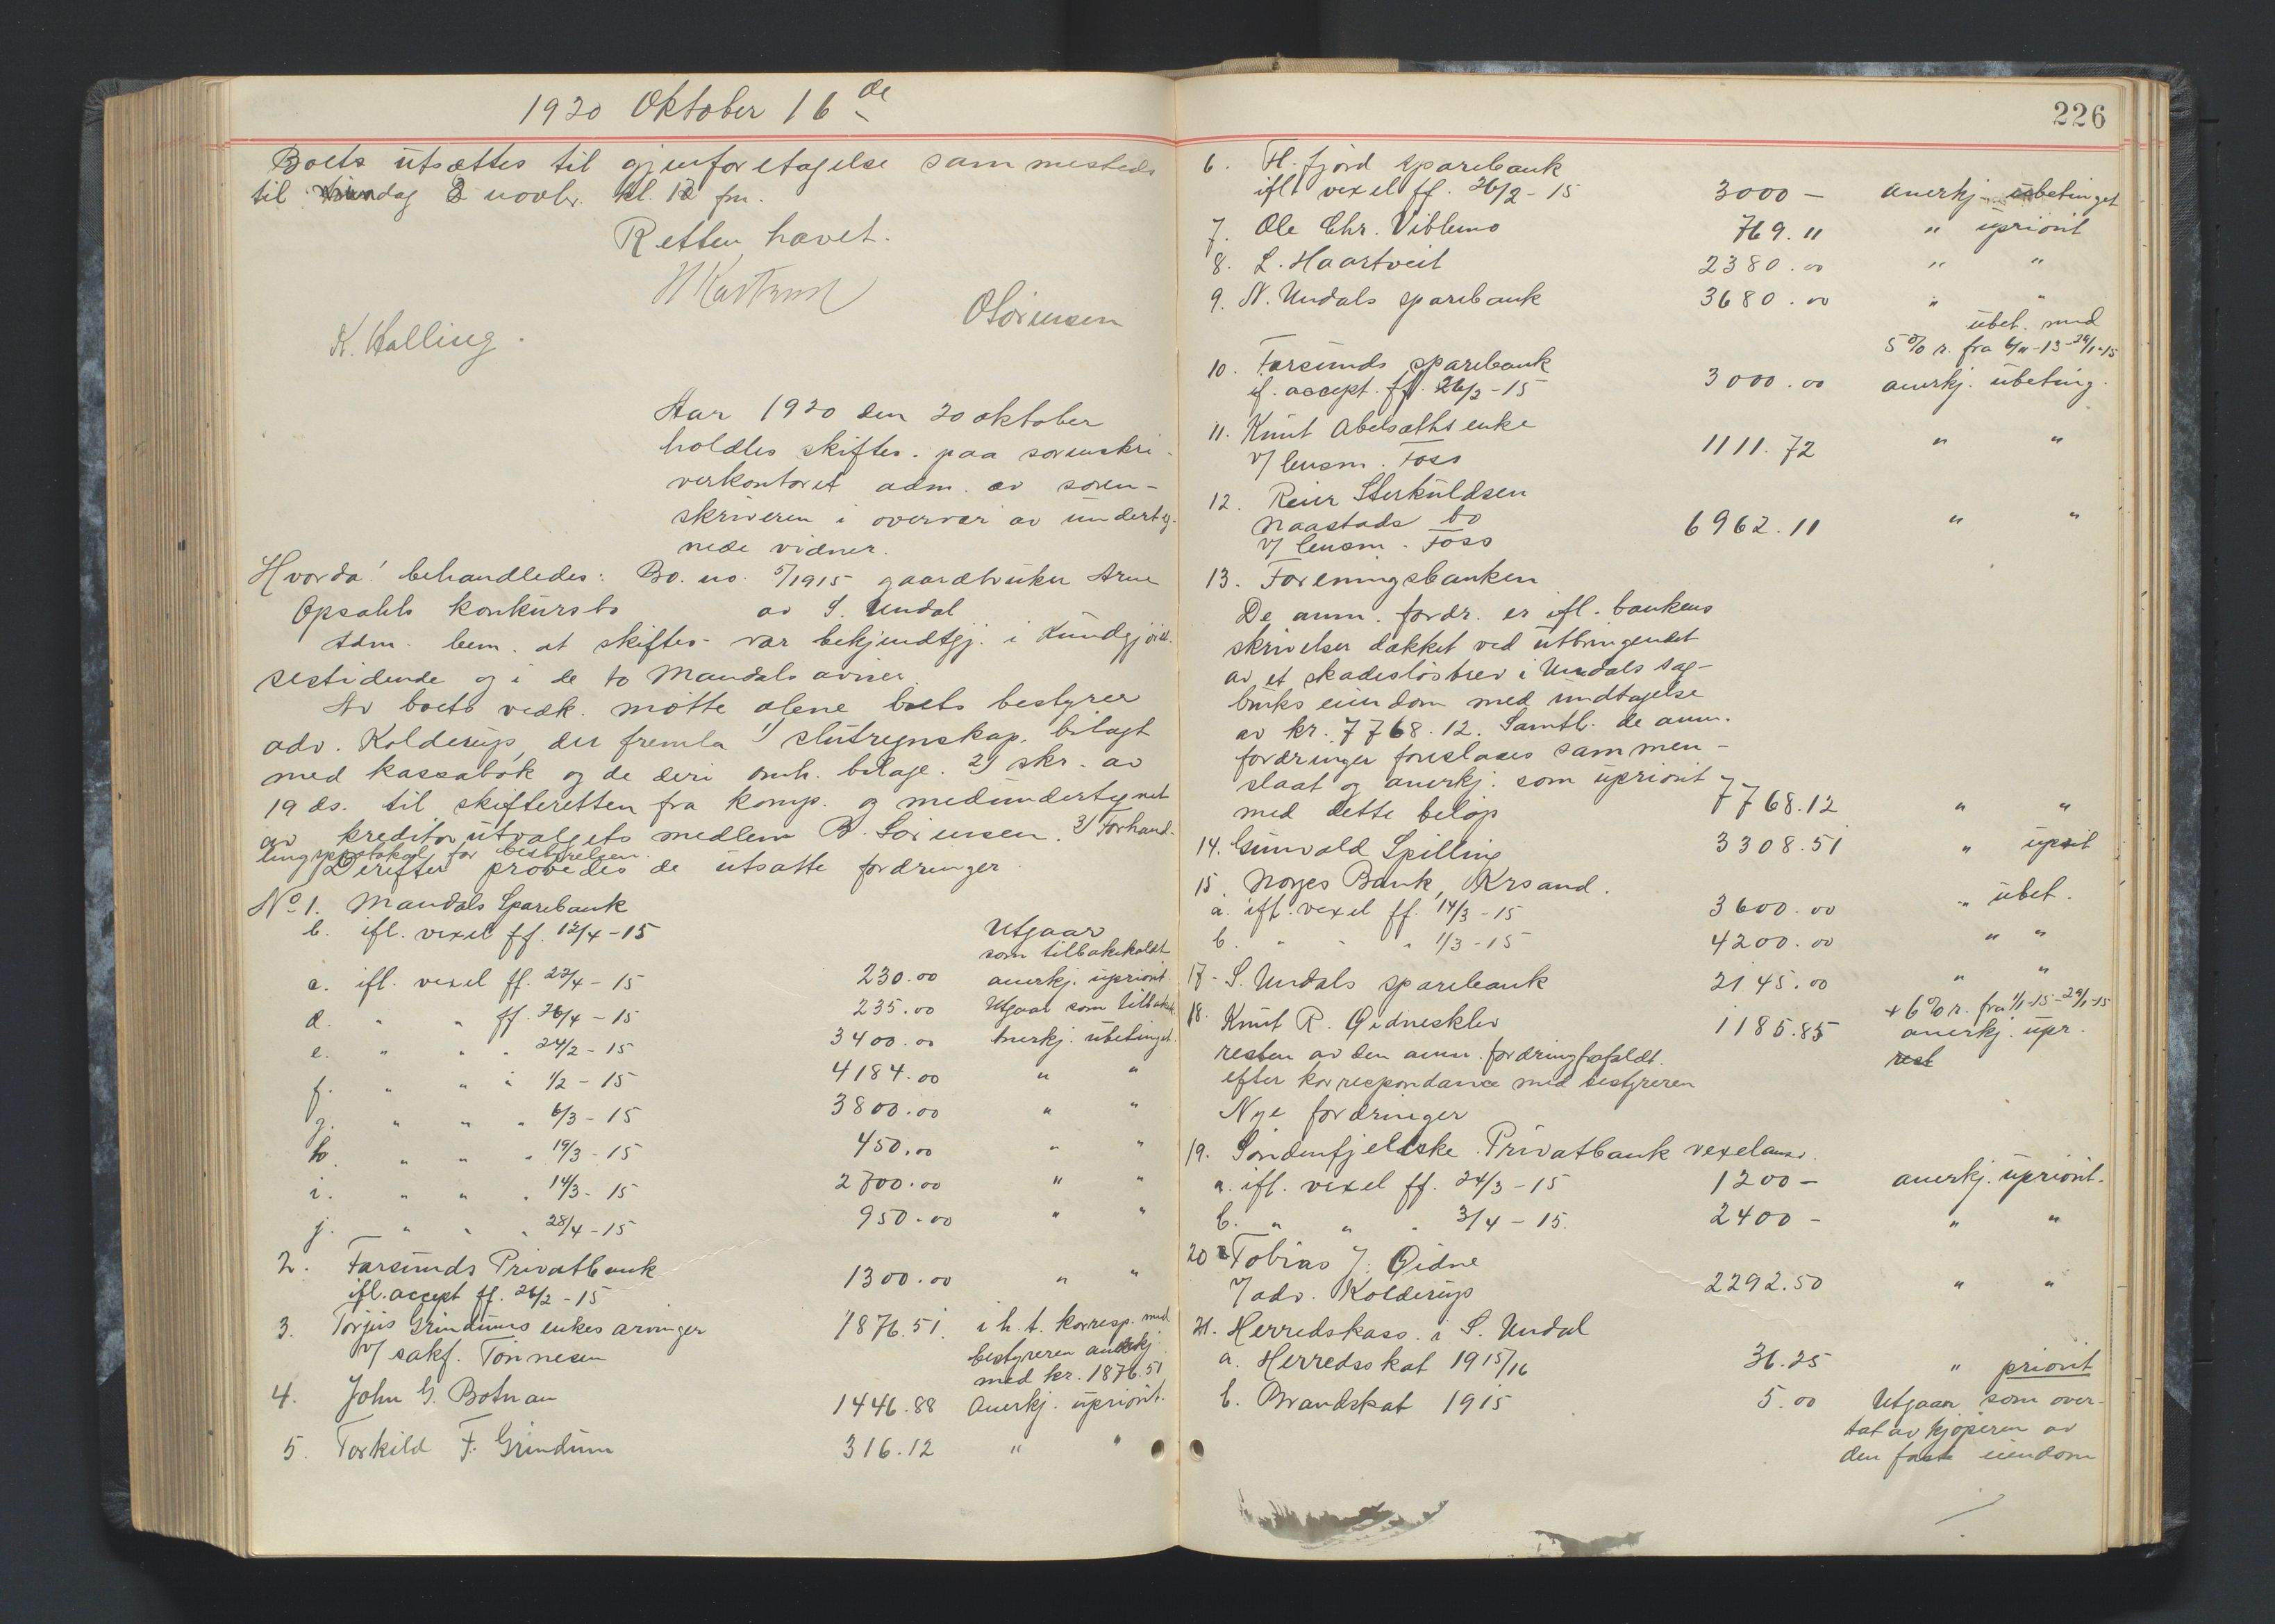 1920 Oktober 16de
Boets utsættes til gjenforetagelse sammesteds
til dag 2 novbr. kl. 12 fm.
Retten hævet.
OSørensen
K. Halling.
Aar 1920 den 20 oktober
holdtes skifter. paa sorenskri-
verkontoret adm. av soren-
skriveren i overvær av underteg-
nede vidner.
Hvorda! behandledes: Bo. no. 5/1915 gaardbruker Arne
Opsahls konkursbo av S. Undal
Adm. bem. at skifter var bekjendtgj. i Kundgjørel-
sestidende og i de to Mandals aviser.
Av boets vedk. møtte alene boets bestyrer
adv. Kolderup, der fremla 1) slutregnskap, bilagt
med kassabok og de deri omh. bilage. 2) skr. av
19 ds. til skifteretten fra komp. og medundertegnet
av kreditorutvalgets medlem B. Sørensen. 3) Forhand-
lingsprotokol for bestyrelsen.
Derefter prøvedes de utsatte fordringer.
No 1. Mandals Sparebank
b. ifl. vexel ff. 12/4-15 Utgaar
som tilbakekaldt
c. ifl. vexel ff. 22/4-15 230.00 anerkj. upriorit.
d. " " ff. 26/4-15 235.00 Utgaar som tilbakek.
e. " " " 24/2-15 3400.00 Anerkj. ubetinget.
f. " " " 1/2-15 4184.00 " "
g. " " " 6/3-15 3800.00 " "
h. " " " 19/3-15 450.00 " "
i. " " " 14/3-15 2700.00 " "
j. " " " 28/4-15 950.00 " "
2. Farsunds Privatbank
ifl. accept ff. 26/2-15 1300.00 " "
3. Torjus Grindums enkes arvinger 1876.51. i h. t. korresp. med
v/ sakf. Tønnesen bestyreren anerkj.
med kr. 1876.51
4. John G. Botnan 1446.88 Anerkj. upriorit.
5. Torkild F. Grindum 316.12 " "
226
6. Fl. fjord sparebank
ifl. vexel ff. 26/2-15 3000 - anerkj. ubetinget
7. Ole Chr. Viblemo 769.11 " upriorit
8. L. Haartveit 2380.00 " "
9. N. Undals sparebank 3680.00 " "
ubet. med
5% r. fra 6/11-13-29/1-15
10. Farsunds sparebank
if. accept. ff. 26/2-15 3000.00 anerkj. ubeting.
11. Knut Abelsæths enke
v/ lensm. Foss 1111.72 " "
12. Reier Sterkuldsen
Naastads bo
v/ lensm. Foss 6962.11 " "
13. Foreningsbanken
De anm. fordr. er ifl. bankens
skrivelser dækket ved utbringendet
av et skadesløsbrev i Undals sag-
bruks eiendom med undtagelse
av kr. 7768.12. Samtl. de anm.
fordringer foreslaaes sammen-
slaat og anerkj. som upriorit
med dette beløp 7768.12 " "
14. Gunvald Spilling 3308.51 " uprit
15. Norges Bank, Krsand.
a. ifl. vexel ff. 14/3-15 3600.00 " ubet.
b. " " " 1/3-15 4200.00 " "
17. S. Undals sparebank 2145.00 " "
+ 6% r. fra 1/1-15-29/1-15
18. Knut R. Gidnesklev 1185.85 anerkj. upr.
resten av den anm. fordring frafaldt. rest
efter korrespondance med bestyreren
Nye fordringer
19. Søndenfjeldske Privatbank vexelansv.
a. ifl. vexel ff. 24/3-15 1200 - anerkj. upriorit.
b. " " " 3/4-15. 2400 - " "
20 Tobias J. Eidne
v/ adv. Kolderup 2292.50 " "
21. Herredskass. i S. Undal
a. Herredsskat 1915/16 36.25 " priorit
b. Brandskat 1915 5.00 Utgaar som over-
tat av kjøperen av
den faste eiendom